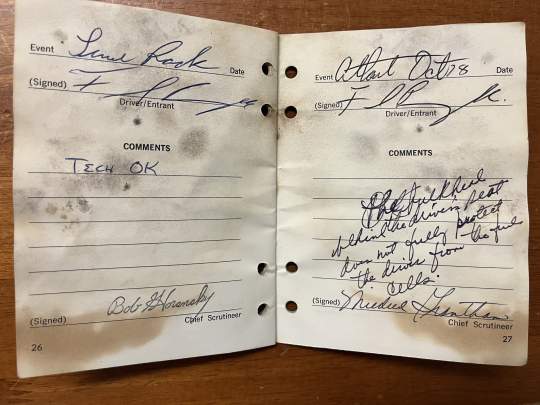 Event Lime Rock Date
(Signed)
Driver/Entrant
COMMENTS
TECH OK
(Signed) Bob
Chief Scrutineer
26
Event Oct 28 Date
(Signed)
Driver/Entrant
COMMENTS
The bulkhead
behind the driver's seat
does not fully protect
the driver from the fuel
cells.
(Signed)
Chief Scrutineer
27